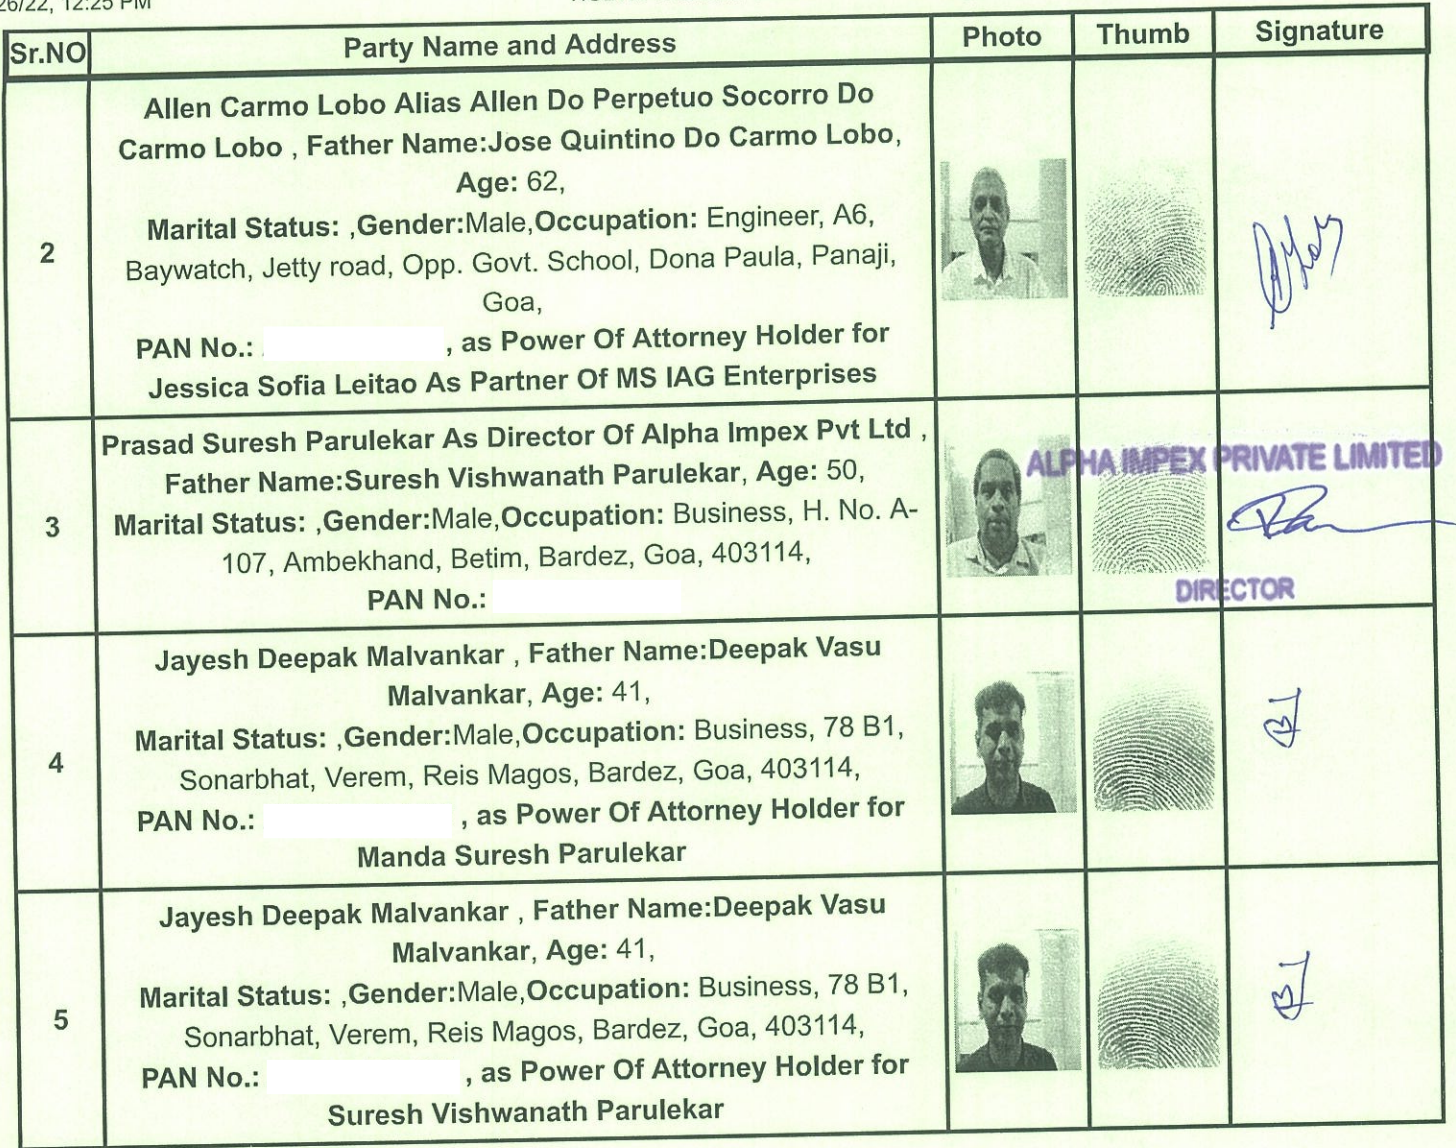 26/22, 12:25 PM
Sr.NO Party Name and Address Photo Thumb Signature
Allen Carmo Lobo Alias Allen Do Perpetuo Socorro Do
Carmo Lobo , Father Name:Jose Quintino Do Carmo Lobo,
Age: 62,
Marital Status: ,Gender:Male,Occupation: Engineer, A6,
2
Baywatch, Jetty road, Opp. Govt. School, Dona Paula, Panaji,
Goa,
PAN No.: , as Power Of Attorney Holder for
Jessica Sofia Leitao As Partner Of MS IAG Enterprises
Prasad Suresh Parulekar As Director Of Alpha Impex Pvt Ltd ,
ALPHA IMPEX PRIVATE LIMITED
Father Name:Suresh Vishwanath Parulekar, Age: 50,
3
Marital Status: ,Gender:Male,Occupation: Business, H. No. A-
107, Ambekhand, Betim, Bardez, Goa, 403114,
PAN No.:
DIRECTOR
Jayesh Deepak Malvankar , Father Name:Deepak Vasu
Malvankar, Age: 41,
Marital Status: ,Gender:Male,Occupation: Business, 78 B1,
4
Sonarbhat, Verem, Reis Magos, Bardez, Goa, 403114,
PAN No.: , as Power Of Attorney Holder for
Manda Suresh Parulekar
Jayesh Deepak Malvankar , Father Name:Deepak Vasu
Malvankar, Age: 41,
Marital Status: ,Gender:Male,Occupation: Business, 78 B1,
5
Sonarbhat, Verem, Reis Magos, Bardez, Goa, 403114,
PAN No.: , as Power Of Attorney Holder for
Suresh Vishwanath Parulekar